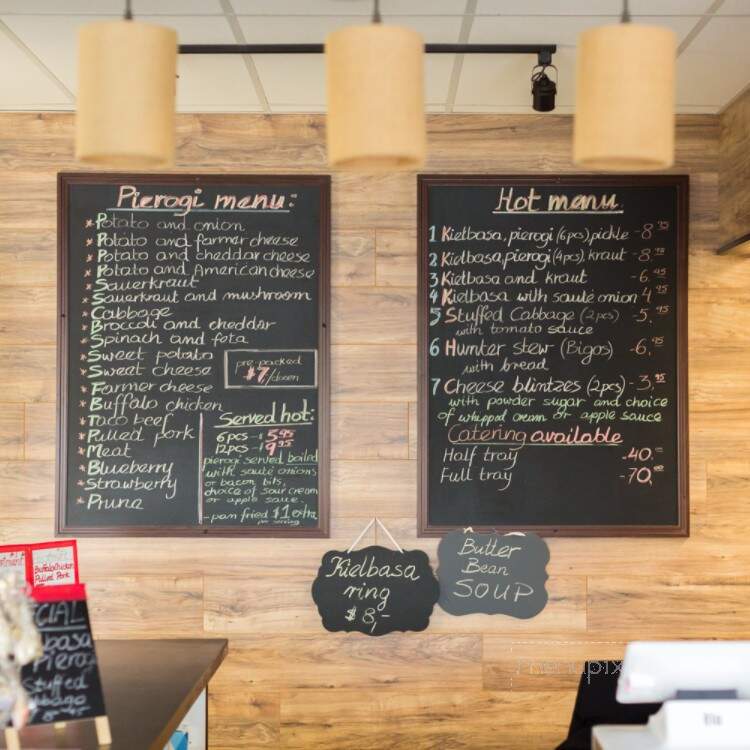 Pierogi menu:
* Potato and onion
* Potato and farmer cheese
* Potato and cheddar cheese
* Potato and American cheese
* Sauerkraut
* Sauerkraut and mushroom
* Cabbage
* Broccoli and cheddar
* Spinach and feta
* Sweet potato
* Sweet cheese
* Farmer cheese
* Buffalo chicken
* Taco beef
* Pulled pork
* Meat
* Blueberry
* Strawberry
* Prune
pre-packed
$7/dozen
Served hot:
6pcs - $5.95
12pcs - $9.95
pierogi served boiled
with sauté onions
or bacon bits,
choice of sour cream
or apple sauce.
...pan fried $1 extra
per serving
Hot menu
1 Kielbasa, pierogi (6pcs), pickle - 8.95
2 Kielbasa, pierogi (4pcs), kraut - 8.95
3 Kielbasa and kraut - 6.45
4 Kielbasa with sauté onion 4.95
5 Stuffed Cabbage (2pcs) - 5.95
with tomato sauce
6 Hunter stew (Bigos) - 6.95
with bread
7 Cheese blintzes (2pcs) - 3.95
with powder sugar and choice
of whipped cream or apple sauce
Catering available
Half tray - 40.-
Full tray - 70.-
Kielbasa
ring
$8,-
Butter
Bean
SOUP
Buffalo Chicken
Pulled Pork
CIAL
basa
Pierogi
Stuffed
menupix